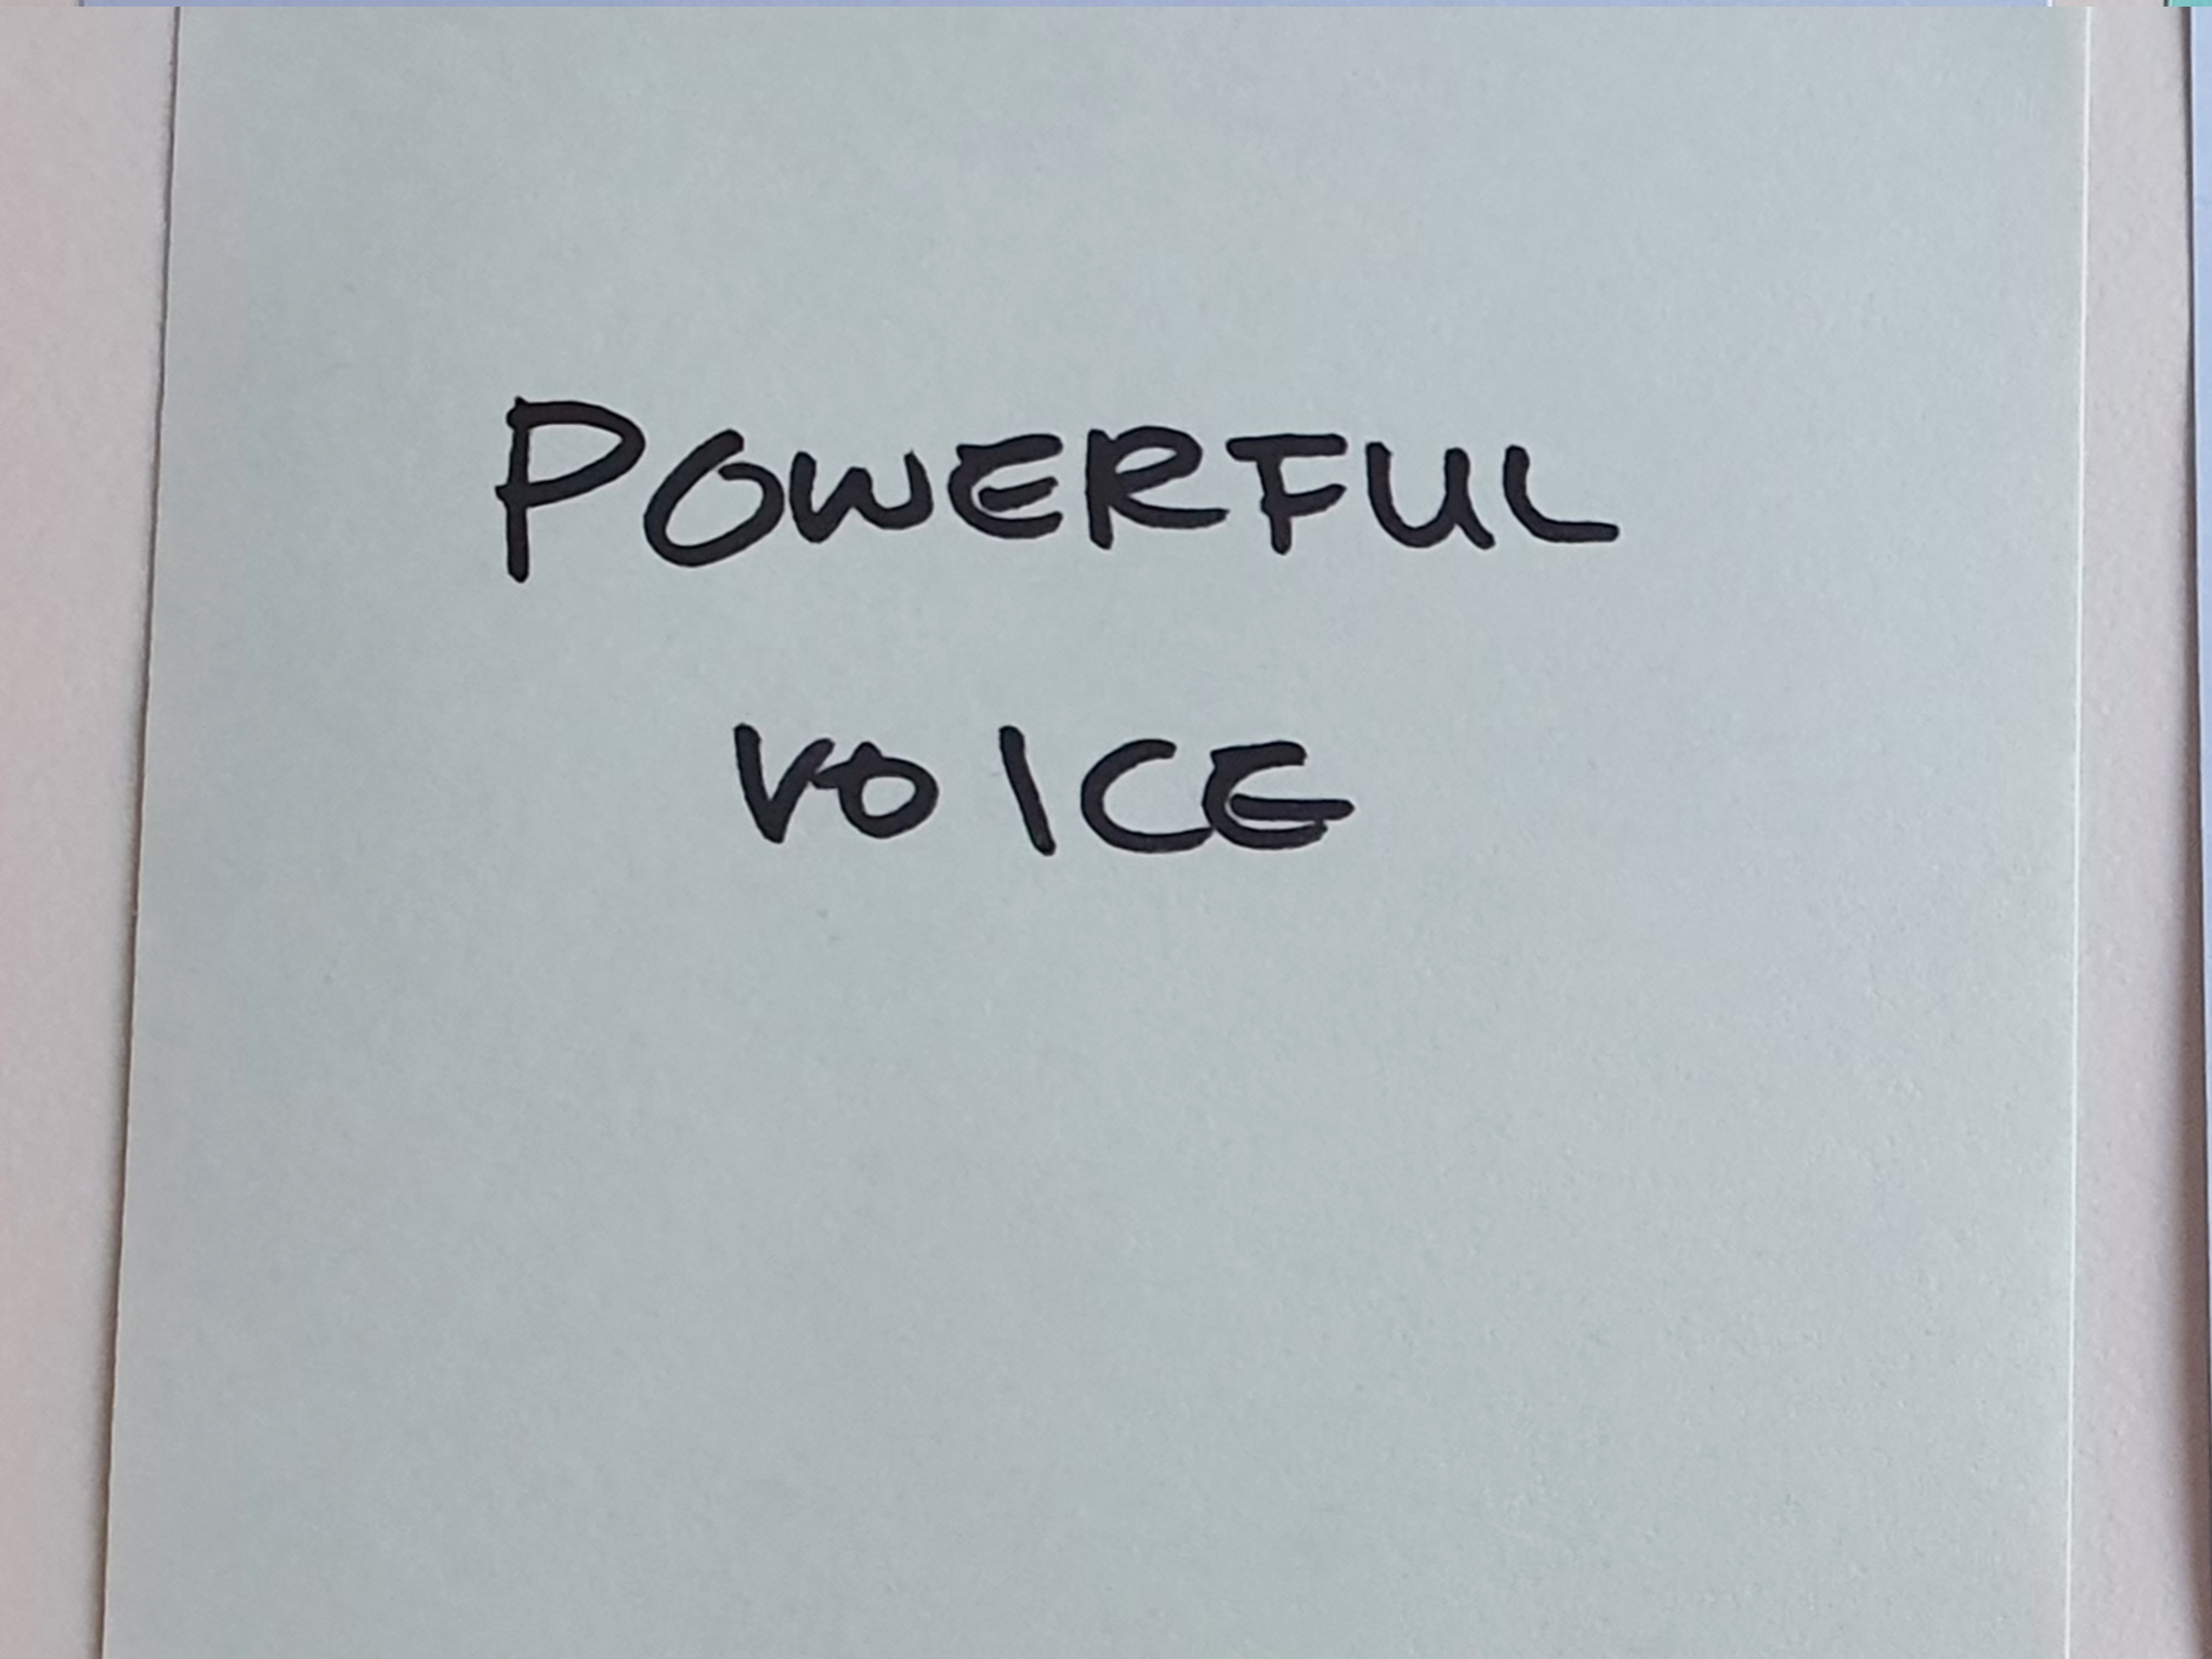 POWERFUL
VOICE